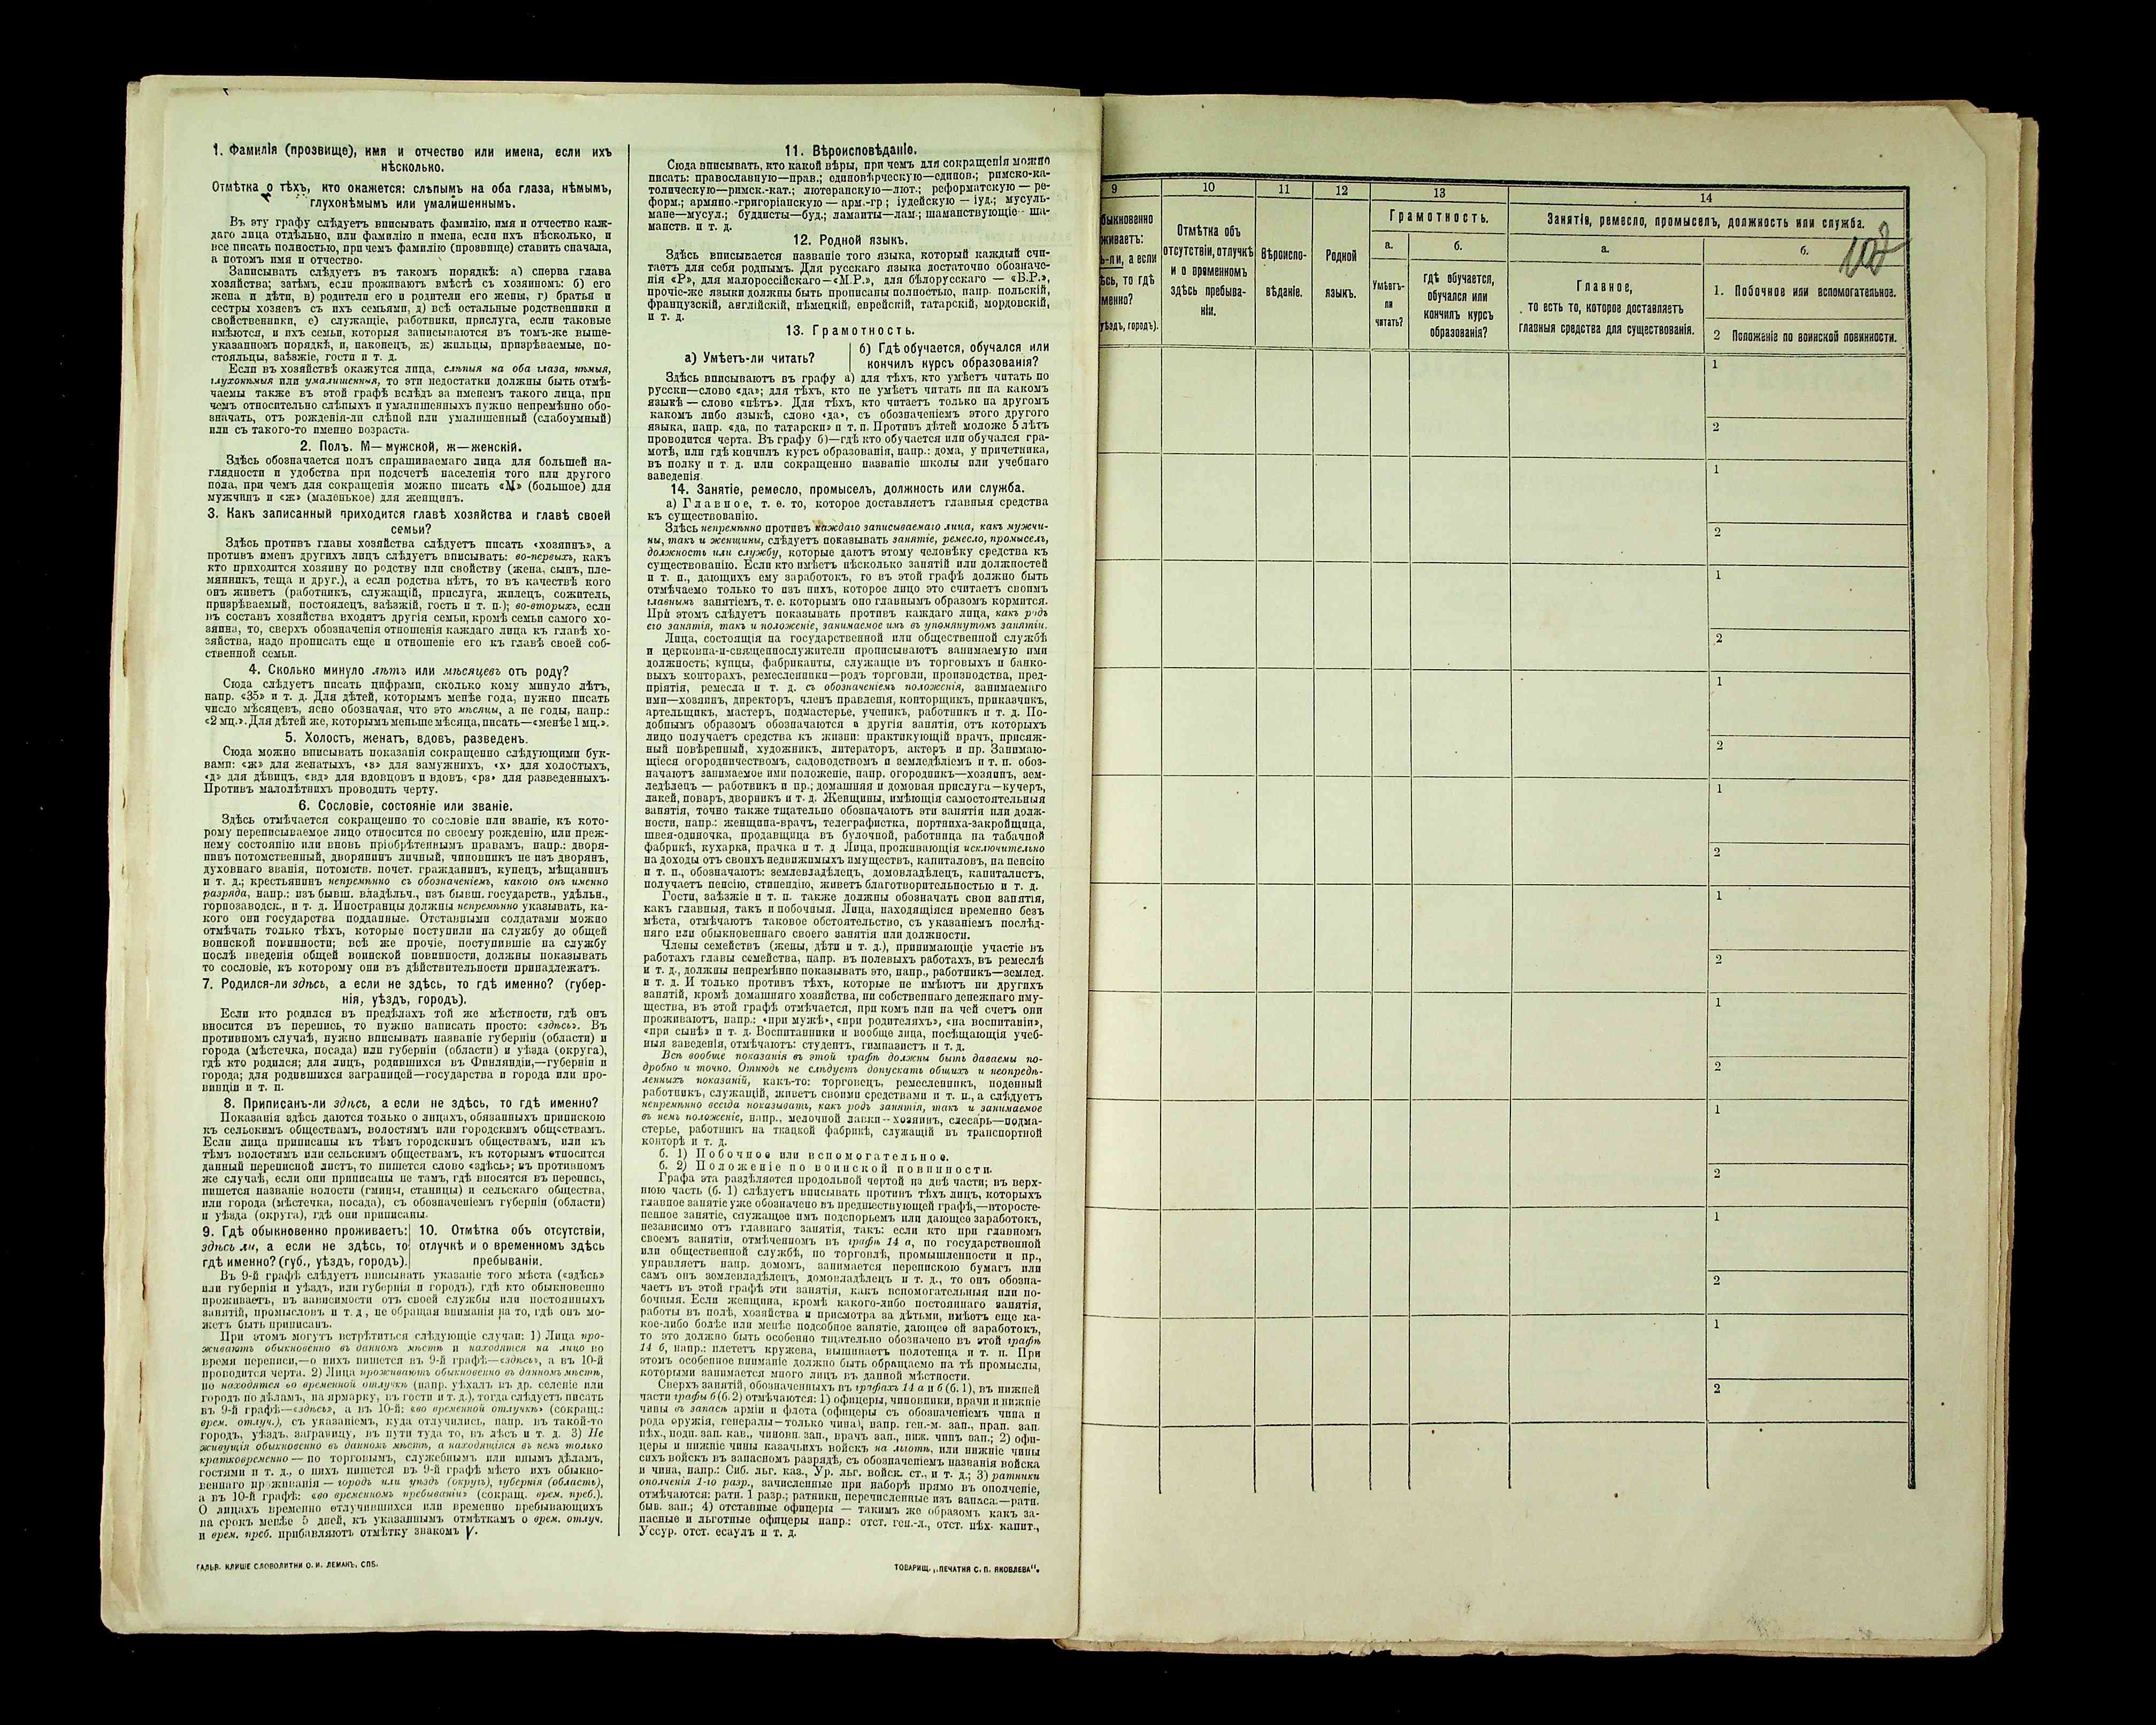 1. Фамилія (прозвище), имя и отчество или имена, если ихъ
нѣсколько.
Отмѣтка о тѣхъ, кто окажется: слѣпымъ на оба глаза, нѣмымъ,
глухонѣмымъ или умалишеннымъ.
Въ эту графу слѣдуетъ вписывать фамилію, имя и отчество каж-
даго лица отдѣльно, или фамилію и имена, если ихъ нѣсколько, и
все писать полностью, при чемъ фамилію (прозвище) ставить сначала,
а потомъ имя и отчество.
Записывать слѣдуетъ въ такомъ порядкѣ: а) сперва глава
хозяйства; затѣмъ, если проживаютъ вмѣстѣ съ хозяиномъ: б) его
жена и дѣти, в) родители его и родители его жены, г) братья и
сестры хозяевъ съ ихъ семьями, д) всѣ остальные родственники и
свойственники, е) служащіе, работники, прислуга, если таковые
имѣются, и ихъ семьи, которыя записываются въ томъ-же выше-
указанномъ порядкѣ, и, наконецъ, ж) жильцы, призрѣваемые, по-
стояльцы, заѣзжіе, гости и т. п.
Если въ хозяйствѣ окажутся лица, слѣпыя на оба глаза, нѣмыя,
глухонѣмыя или умалишенныя, то эти недостатки должны быть отмѣ-
чаемы также въ этой графѣ вслѣдъ за именемъ такого лица, при
чемъ относительно слѣпыхъ и умалишенныхъ нужно непремѣнно обо-
значать, отъ рожденія-ли слѣпой или умалишенный (слабоумный)
или съ такого-то именно возраста.
2. Полъ. М—мужской, ж—женскій.
Здѣсь обозначается полъ спрашиваемаго лица для большей на-
глядности и удобства при подсчетѣ населенія того или другого
пола, при чемъ для сокращенія можно писать «М» (большое) для
мужчинъ и «ж» (маленькое) для женщинъ.
3. Какъ записанный приходится главѣ хозяйства и главѣ своей
семьи?
Здѣсь противъ главы хозяйства слѣдуетъ писать «хозяинъ», а
противъ именъ другихъ лицъ слѣдуетъ вписывать: во-первыхъ, какъ
кто приходится хозяину по родству или свойству (жена, сынъ, пле-
мянникъ, теща и друг.), а если родства нѣтъ, то въ качествѣ кого
онъ живетъ (работникъ, служащій, прислуга, жилецъ, сожитель,
призрѣваемый, постоялецъ, заѣзжій, гость и т. п.); во-вторыхъ, если
въ составъ хозяйства входятъ другія семьи, кромѣ семьи самого хо-
зяина, то, сверхъ обозначенія отношенія каждаго лица къ главѣ хо-
зяйства, надо прописать еще и отношеніе его къ главѣ своей соб-
ственной семьи.
4. Сколько минуло лѣтъ или мѣсяцевъ отъ роду?
Сюда слѣдуетъ писать цифрами, сколько кому минуло лѣтъ,
напр. «35» и т. д. Для дѣтей, которымъ менѣе года, нужно писать
число мѣсяцевъ, ясно обозначая, что это мѣсяцы, а не годы, напр.:
«2 мц.». Для дѣтей же, которымъ меньше мѣсяца, писать—«менѣе 1 мц.».
5. Холостъ, женатъ, вдовъ, разведенъ.
Сюда можно вписывать показанія сокращенно слѣдующими бук-
вами: «ж» для женатыхъ, «з» для замужнихъ, «х» для холостыхъ,
«д» для дѣвицъ, «вд» для вдовцовъ и вдовъ, «рз» для разведенныхъ.
Противъ малолѣтнихъ проводить черту.
6. Сословіе, состояніе или званіе.
Здѣсь отмѣчается сокращенно то сословіе или званіе, къ кото-
рому переписываемое лицо относится по своему рожденію, или преж-
нему состоянію или вновь пріобрѣтеннымъ правамъ, напр.: дворя-
нинъ потомственный, дворянинъ личный, чиновникъ не изъ дворянъ,
духовнаго званія, потомств. почет. гражданинъ, купецъ, мѣщанинъ
и т. д.; крестьянинъ непремѣнно съ обозначеніемъ, какою онъ именно
разряда, напр.: изъ бывш. владѣльч., изъ бывш. государств., удѣльн.,
горнозаводск., и т. д. Иностранцы должны непремѣнно указывать, ка-
кого они государства подданные. Отставными солдатами можно
отмѣчать только тѣхъ, которые поступили на службу до общей
воинской повинности; всѣ же прочіе, поступившіе на службу
послѣ введенія общей воинской повинности, должны показывать
то сословіе, къ которому они въ дѣйствительности принадлежатъ.
7. Родился-ли здѣсь, а если не здѣсь, то гдѣ именно? (губер-
нія, уѣздъ, городъ).
Если кто родился въ предѣлахъ той же мѣстности, гдѣ онъ
вносится въ перепись, то нужно написать просто: «здѣсь». Въ
противномъ случаѣ, нужно вписывать названіе губерніи (области) и
города (мѣстечка, посада) или губерніи (области) и уѣзда (округа),
гдѣ кто родился; для лицъ, родившихся въ Финляндіи,—губерніи и
города; для родившихся заграницей—государства и города или про-
винціи и т. п.
8. Приписанъ-ли здѣсь, а если не здѣсь, то гдѣ именно?
Показанія здѣсь даются только о лицахъ, обязанныхъ припискою
къ сельскимъ обществамъ, волостямъ или городскимъ обществамъ.
Если лица приписаны къ тѣмъ городскимъ обществамъ, или къ
тѣмъ волостямъ или сельскимъ обществамъ, къ которымъ относится
данный переписной листъ, то пишется слово «здѣсь»; въ противномъ
же случаѣ, если они приписаны не тамъ, гдѣ вносятся въ перепись,
пишется названіе волости (гмины, станицы) и сельскаго общества,
или города (мѣстечка, посада), съ обозначеніемъ губерніи (области)
и уѣзда (округа), гдѣ они приписаны.
9. Гдѣ обыкновенно проживаетъ:
здѣсь ли, а если не здѣсь, то
гдѣ именно? (губ., уѣздъ, городъ).
10. Отмѣтка объ отсутствіи,
отлучкѣ и о временномъ здѣсь
пребываніи.
Въ 9-й графѣ слѣдуетъ вписывать указаніе того мѣста («здѣсь»
или губернія и уѣздъ, или губернія и городъ), гдѣ кто обыкновенно
проживаетъ, въ зависимости отъ своей службы или постоянныхъ
занятій, промысловъ и т. д., не обращая вниманія на то, гдѣ онъ мо-
жетъ быть приписанъ.
При этомъ могутъ встрѣтиться слѣдующіе случаи: 1) Лица про-
живаютъ обыкновенно въ данномъ мѣстѣ и находятся на лицо во
время переписи,—о нихъ пишется въ 9-й графѣ—«здѣсь», а въ 10-й
проводится черта. 2) Лица проживаютъ обыкновенно въ данномъ мѣстѣ,
но находятся во временной отлучкѣ (напр. уѣхалъ въ др. селеніе или
городъ по дѣламъ, на ярмарку, въ гости и т. д.), тогда слѣдуетъ писать
въ 9-й графѣ—«здѣсь», а въ 10-й: «во временной отлучкѣ» (сокращ.:
врем. отлуч.), съ указаніемъ, куда отлучились, напр. въ такой-то
городъ, уѣздъ, заграницу, въ пути туда то, въ лѣсъ и т. д. 3) Не
живущія обыкновенно въ данномъ мѣстѣ, а находящіяся въ немъ только
кратковременно — по торговымъ, служебнымъ или инымъ дѣламъ,
гостями и т. д., о нихъ пишется въ 9-й графѣ мѣсто ихъ обыкно-
веннаго проживанія — городъ или уѣздъ (округъ), губернія (область),
а въ 10-й графѣ: «во временномъ пребываніи» (сокращ. врем. преб.).
О лицахъ временно отлучившихся или временно пребывающихъ
на срокъ менѣе 5 дней, къ указаннымъ отмѣткамъ о врем. отлуч.
и врем. преб. прибавляютъ отмѣтку знакомъ V.
ГАЛЬВ. КЛИШЕ СЛОВОЛИТНИ О. И. ЛЕМАНЪ, СПБ.
11. Вѣроисповѣданіе.
Сюда вписывать, кто какой вѣры, при чемъ для сокращенія можно
писать: православную—прав.; единовѣрческую—единов.; римско-ка-
толическую—римск.-кат.; лютеранскую—лют.; реформатскую — ре-
форм.; армяно.-григоріанскую — арм.-гр; іудейскую — іуд.; мусуль-
мане—мусул.; буддисты—буд.; ламаиты—лам.; шаманствующіе— ша-
манств. и т. д.
12. Родной языкъ.
Здѣсь вписывается названіе того языка, который каждый счи-
таетъ для себя роднымъ. Для русскаго языка достаточно обозначе-
нія «Р», для малороссійскаго—«М.Р.», для бѣлорусскаго — «Б.Р.»,
прочіе-же языки должны быть прописаны полностью, напр. польскій,
французскій, англійскій, нѣмецкій, еврейскій, татарскій, мордовскій,
и т. д.
13. Грамотность.
а) Умѣетъ-ли читать?
б) Гдѣ обучается, обучался или
кончилъ курсъ образованія?
Здѣсь вписываютъ въ графу а) для тѣхъ, кто умѣетъ читать по
русски—слово «да»; для тѣхъ, кто не умѣетъ читать ни на какомъ
языкѣ — слово «нѣтъ». Для тѣхъ, кто читаетъ только на другомъ
какомъ либо языкѣ, слово «да», съ обозначеніемъ этого другого
языка, напр. «да, по татарски» и т. п. Противъ дѣтей моложе 5 лѣтъ
проводится черта. Въ графу б)—гдѣ кто обучается или обучался гра-
мотѣ, или гдѣ кончилъ курсъ образованія, напр.: дома, у причетника,
въ полку и т. д. или сокращенно названіе школы или учебнаго
заведенія.
14. Занятіе, ремесло, промыселъ, должность или служба.
а) Главное, т. е. то, которое доставляетъ главныя средства
къ существованію.
Здѣсь непремѣнно противъ каждаго записываемаго лица, какъ мужчи-
ны, такъ и женщины, слѣдуетъ показывать занятіе, ремесло, промыселъ,
должность или службу, которые даютъ этому человѣку средства къ
существованію. Если кто имѣетъ нѣсколько занятій или должностей
и т. п., дающихъ ему заработокъ, то въ этой графѣ должно быть
отмѣчаемо только то изъ нихъ, которое лицо это считаетъ своимъ
главнымъ занятіемъ, т. е. которымъ оно главнымъ образомъ кормится.
При этомъ слѣдуетъ показывать противъ каждаго лица, какъ родъ
его занятія, такъ и положеніе, занимаемое имъ въ упомянутомъ занятіи.
Лица, состоящія на государственной или общественной службѣ
и церковно-и-священнослужители прописываютъ занимаемую ими
должность; купцы, фабриканты, служащіе въ торговыхъ и банко-
выхъ конторахъ, ремесленники—родъ торговли, производства, пред-
пріятія, ремесла и т. д. съ обозначеніемъ положенія, занимаемаго
ими—хозяинъ, директоръ, членъ правленія, конторщикъ, приказчикъ,
артельщикъ, мастеръ, подмастерье, ученикъ, работникъ и т. д. По-
добнымъ образомъ обозначаются и другія занятія, отъ которыхъ
лицо получаетъ средства къ жизни: практикующій врачъ, присяж-
ный повѣренный, художникъ, литераторъ, актеръ и пр. Занимаю-
щіеся огородничествомъ, садоводствомъ и земледѣліемъ и т. п. обоз-
начаютъ занимаемое ими положеніе, напр. огородникъ—хозяинъ, зем-
ледѣлецъ — работникъ и пр.; домашняя и домовая прислуга—кучеръ,
лакей, поваръ, дворникъ и т. д. Женщины, имѣющія самостоятельныя
занятія, точно также тщательно обозначаютъ эти занятія или долж-
ности, напр.: женщина-врачъ, телеграфистка, портниха-закройщица,
швея-одиночка, продавщица въ булочной, работница на табачной
фабрикѣ, кухарка, прачка и т. д. Лица, проживающія исключительно
на доходы отъ своихъ недвижимыхъ имуществъ, капиталовъ, на пенсію
и т. п., обозначаютъ: землевладѣлецъ, домовладѣлецъ, капиталистъ,
получаетъ пенсію, стипендію, живетъ благотворительностью и т. д.
Гости, заѣзжіе и т. п. также должны обозначать свои занятія,
какъ главныя, такъ и побочныя. Лица, находящіяся временно безъ
мѣста, отмѣчаютъ таковое обстоятельство, съ указаніемъ послѣд-
няго или обыкновеннаго своего занятія или должности.
Члены семействъ (жены, дѣти и т. д.), принимающіе участіе въ
работахъ главы семейства, напр. въ полевыхъ работахъ, въ ремеслѣ
и т. д., должны непремѣнно показывать это, напр., работникъ—землед.
и т. д. И только противъ тѣхъ, которые не имѣютъ ни другихъ
занятій, кромѣ домашняго хозяйства, ни собственнаго денежнаго иму-
щества, въ этой графѣ отмѣчается, при комъ или на чей счетъ они
проживаютъ, напр.: «при мужѣ», «при родителяхъ», «на воспитаніи»,
«при сынѣ» и т. д. Воспитанники и вообще лица, посѣщающія учеб-
ныя заведенія, отмѣчаютъ: студентъ, гимназистъ и т. д.
Всѣ вообще показанія въ этой графѣ должны быть даваемы по-
дробно и точно. Отнюдь не слѣдуетъ допускать общихъ и неопредѣ-
ленныхъ показаній, какъ-то: торговецъ, ремесленникъ, поденный
работникъ, служащій, живетъ своими средствами и т. п., а слѣдуетъ
непремѣнно всегда показывать, какъ родъ занятія, такъ и занимаемое
въ немъ положеніе, напр., мелочной лавки--хозяинъ, слесарь—подма-
стерье, работникъ на ткацкой фабрикѣ, служащій въ транспортной
конторѣ и т. д.
б. 1) Побочное или вспомогательное.
б. 2) Положеніе по воинской повинности.
Графа эта раздѣляется продольной чертой на двѣ части; въ верх-
нюю часть (б. 1) слѣдуетъ вписывать противъ тѣхъ лицъ, которыхъ
главное занятіе уже обозначено въ предшествующей графѣ,—второсте-
пенное занятіе, служащее имъ подспорьемъ или дающее заработокъ,
независимо отъ главнаго занятія, такъ: если кто при главномъ
своемъ занятіи, отмѣченномъ въ графѣ 14 а, по государственной
или общественной службѣ, по торговлѣ, промышленности и пр.,
управляетъ напр. домомъ, занимается перепискою бумагъ или
самъ онъ землевладѣлецъ, домовладѣлецъ и т. д., то онъ обозна-
чаетъ въ этой графѣ эти занятія, какъ вспомогательныя или по-
бочныя. Если женщина, кромѣ какого-либо постояннаго занятія,
работы въ полѣ, хозяйства и присмотра за дѣтьми, имѣетъ еще ка-
кое-либо болѣе или менѣе подсобное занятіе, дающее ей заработокъ,
то это должно быть особенно тщательно обозначено въ этой графѣ
14 б, напр.: плететъ кружева, вышиваетъ полотенца и т. п. При
этомъ особенное вниманіе должно быть обращаемо на тѣ промыслы,
которыми занимается много лицъ въ данной мѣстности.
Сверхъ занятій, обозначенныхъ въ графахъ 14 а и б (б. 1), въ нижней
части графы б (б. 2) отмѣчаются: 1) офицеры, чиновники, врачи и нижніе
чины въ запасѣ арміи и флота (офицеры съ обозначеніемъ чина и
рода оружія, генералы—только чина), напр. ген.-м. зап., прап. зап.
пѣх., подп. зап. кав., чиновн. зап., врачъ зап., ниж. чинъ зап.; 2) офи-
церы и нижніе чины казачьихъ войскъ на льготѣ, или нижніе чины
сихъ войскъ въ запасномъ разрядѣ, съ обозначеніемъ названія войска
и чина, напр.: Сиб. льг. каз., Ур. льг. войск. ст., и т. д.; 3) ратники
ополченія 1-го разр., зачисленные при наборѣ прямо въ ополченіе,
отмѣчаются: ратн. 1 разр.; ратники, перечисленные изъ запаса.—ратн.
быв. зап.; 4) отставные офицеры — такимъ же образомъ какъ за-
пасные и льготные офицеры напр.: отст. ген.-л., отст. пѣх. капит.,
Уссур. отст. есаулъ и т. д.
ТОВАРИЩ. „ПЕЧАТНЯ С. П. ЯКОВЛЕВА".
9
быкновенно
живаетъ:
ь-ли, а если
ѣсь, то гдѣ
менно?
уѣздъ, городъ).
10
Отмѣтка объ
отсутствіи, отлучкѣ
и о временномъ
здѣсь пребыва-
ніи.
11
Вѣроиспо-
вѣданіе.
12
Родной
языкъ.
13
Грамотность.
а.
Умѣетъ-
ли
читать?
б.
гдѣ обучается,
обучался или
кончилъ курсъ
образованія?
14
Занятіе, ремесло, промыселъ, должность или служба.
а.
Главное,
то есть то, которое доставляетъ
главныя средства для существованія.
б.
1. Побочное или вспомогательное.
2 Положеніе по воинской повинности.
1
2
1
2
1
2
1
2
1
2
1
2
1
2
1
2
1
2
1
2